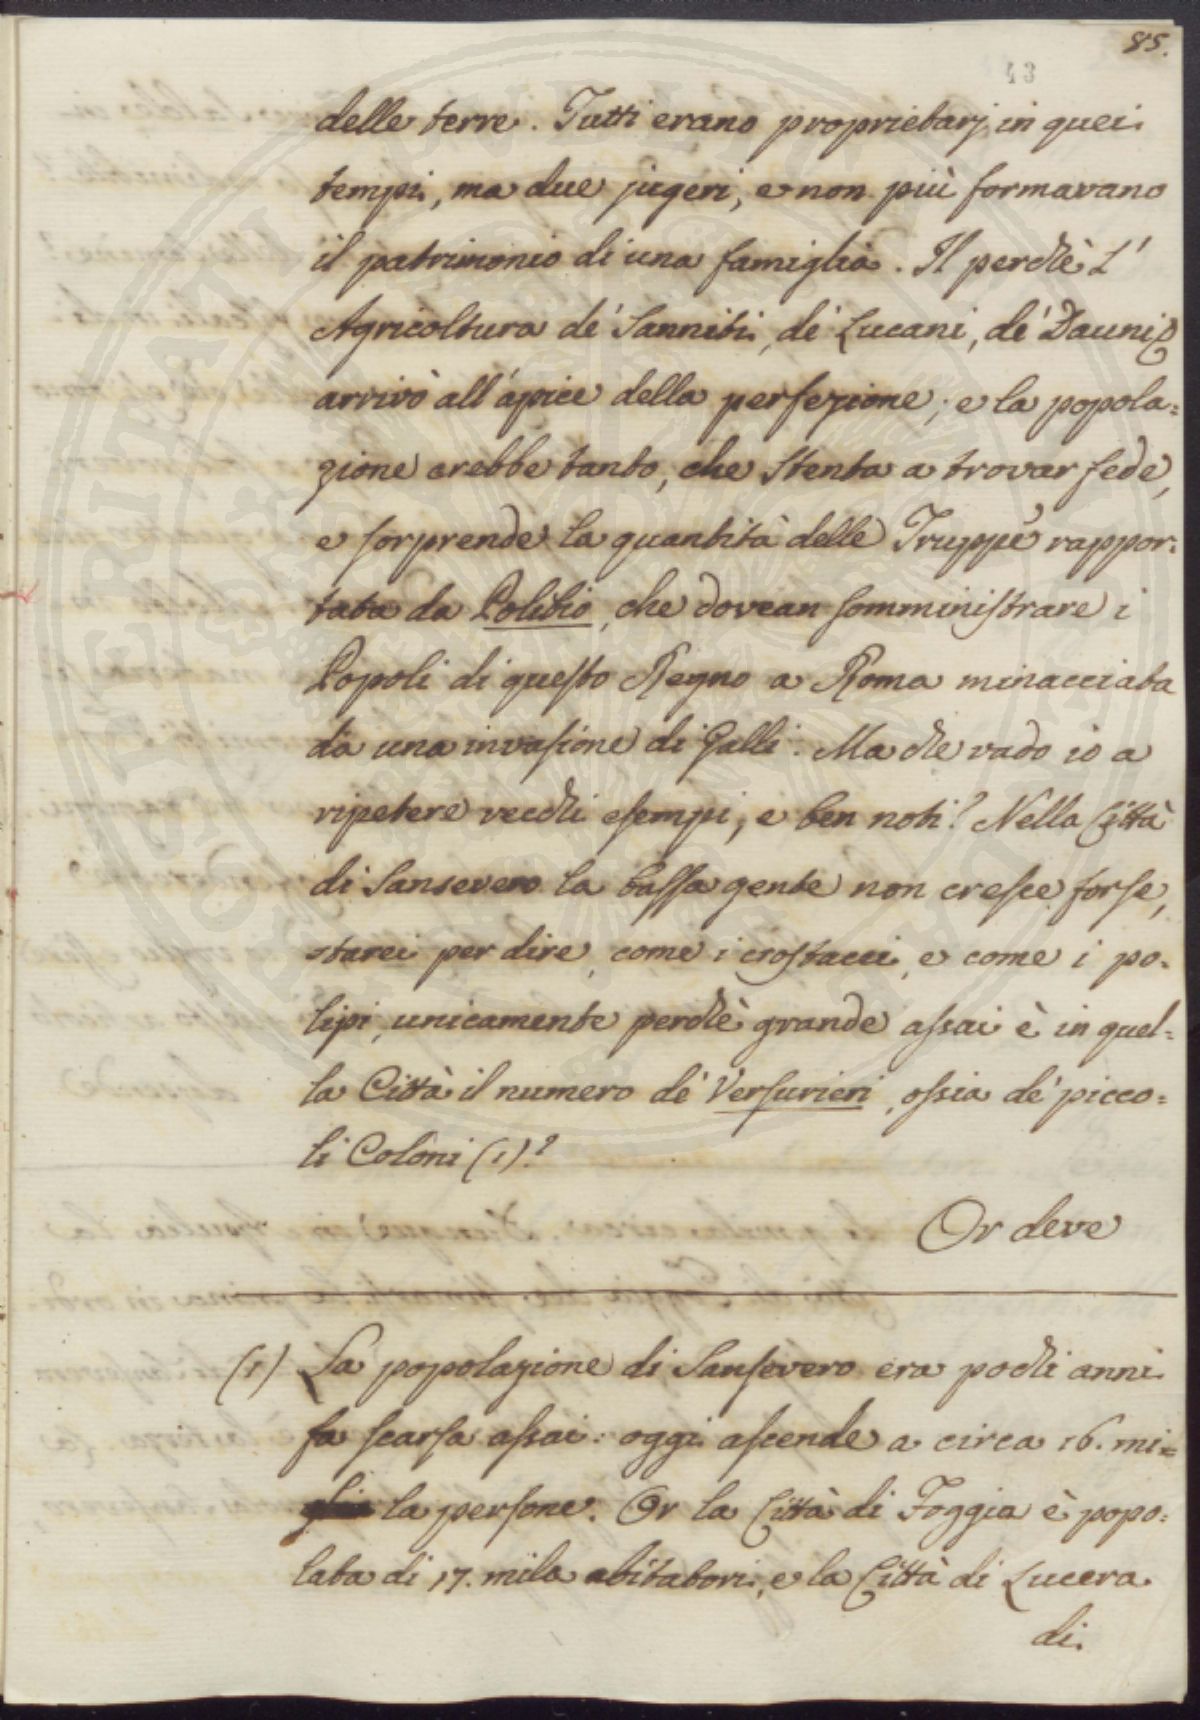 85.
43
delle terre. Tutti erano proprietarj in quei
tempi, ma due jugeri, e non più formavano
il patrimonio di una famiglia. Il perchè L'
Agricoltura de' Sanniti, de' Lucani, de' Dauni
arrivò all'apice della perfezione; e la popola=
zione crebbe tanto, che stenta a trovar fede,
e sorprende la quantità delle Truppe rappor=
tata da Polibio, che dovean somministrare i
Popoli di questo Regno a Roma minacciata
da una invasione di Galli. Ma che vado io a
ripetere vecchi esempi, e ben noti? Nella Città
di Sansevero la bassa gente non cresce forse,
starei per dire, come i crostacci, e come i po=
lipi, unicamente perchè grande assai è in quel=
la Città il numero de' Versurieri, ossia de' picco=
li Coloni (1)?
Or deve
(1) La popolazione di Sansevero era pochi anni
fa scarsa assai: oggi ascende a circa 16. mi=
la persone. Or la Città di Foggia è popo=
lata di 17. mila abitatori, e la Città di Lucera
di